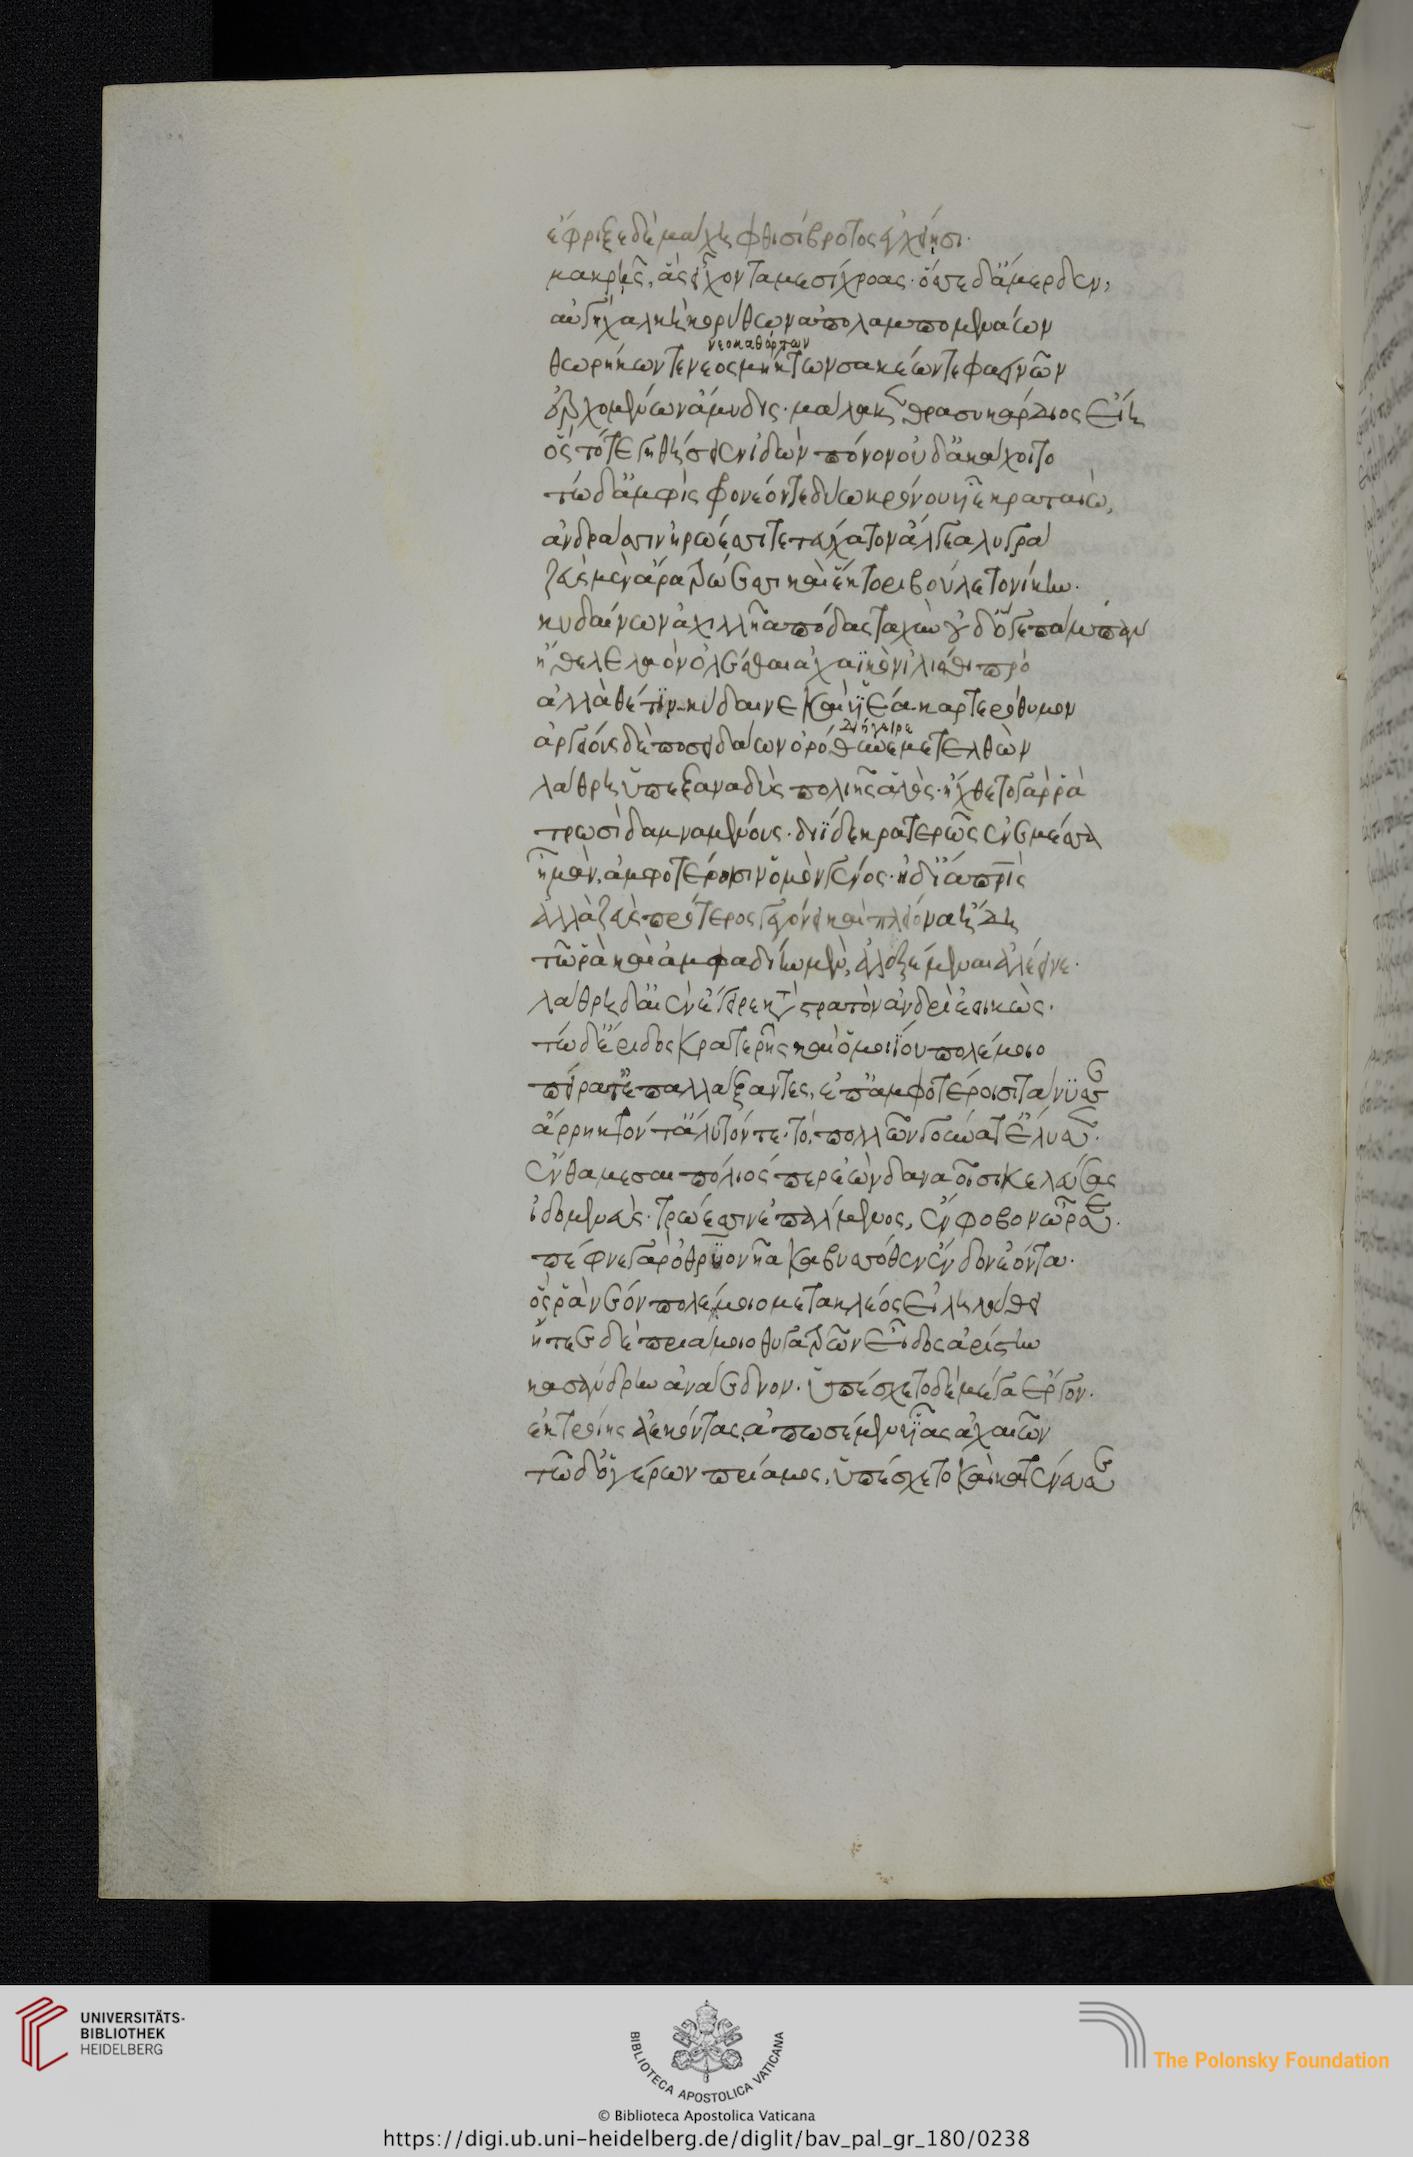 ἔφριξε δὲ μάχη φθισίβροτος ἐγχείησι·
μακρῆς, ἃς εἶχον ταμεσίχροας· ὄσσε δ' ἄμερδεν,
αὐγὴ χαλκείη κορύθων ἄπο λαμπομενάων
νεοκαθάρτων
θωρήκων τε νεοσμήκτων σακέων τε φαεινῶν
ἐρχομένων ἄμυδις· μάλα κεν θρασυκάρδιος εἴη
ὃς τότε γηθήσειεν ἰδὼν πόνον οὐδ' ἀκάχοιτο
τὼ δ' ἀμφὶς φρονέοντε δύω κρόνου υἷε κραταιὼ,
ἀνδράσιν ἡρώεσσι τετεύχατον ἄλγεα λυγρά
ζεὺς μὲν ἄρα τρώεσσι καὶ ἕκτορι βούλετο νίκην·
κυδαίνων ἀχιλλῆα πόδας ταχὺν οὐδ' ὅγε πάμπαν
ἤθελε λαὸν ὀλέσθαι ἀχαϊκὸν ἰλιόθι πρό
ἀλλὰ θέτιν κύδαινε καὶ υἱέα καρτερόθυμον
διήγειρε
ἀργείους δὲ ποσειδάων ὀρόθυνε μετελθὼν
λάθρη ὑπεξαναδὺς πολιῆς ἁλός· ἤχθετο γάρ ῥα
τρωσὶ δαμναμένους· διῒ δὲ κρατερῶς ἐνεμέσσα
ἦ μὰν ἀμφοτέροισιν ὁμὸν γένος· ἠδ' ἴα πάτρη
ἀλλὰ ζεὺς πρότερος γεγόνει καὶ πλείονα ᾔδη
τῶ ῥα καὶ ἀμφαδίην μὲν ἀλεξέμεναι ἀλέεινε·
λάθρη δ' αἰὲν ἔγειρε κατὰ στρατὸν ἀνδρὶ ἐοικώς·
τὼ δ' ἔριδος κρατερῆς καὶ ὁμοιΐου πολέμοιο
πεῖραρ ἐπαλλάξαντες, ἐπ' ἀμφοτέροισι τάνυσσαν
ἄρρηκτόν τ' ἄλυτόν τε· τό, πολλῶν γούνατ' ἔλυσεν·
ἔνθα μεσαιπόλιός περ ἐὼν δαναοῖσι κελεύσας
ἰδομενεύς· τρώεσσιν ἐπάλμενος, ἐν φόβον ὦρσεν·
πέφνε γὰρ ὀθρυονῆα καβησόθεν ἔνδον ἐόντα·
ὅς ῥα νέον πολέμοιο μετὰ κλέος εἰληλούθει
ᾔτεε δὲ πριάμοιο θυγατρῶν εἶδος ἀρίστην
κασσάνδρην ἀνάεδνον· ὑπέσχετο δὲ μέγα ἔργον·
ἐκ τροίης ἀέκοντας ἀπωσέμεν υἷας ἀχαιῶν
τῶ δ' ὁ γέρων πρίαμος, ὑπέσχετο καὶ κατένευσεν
UNIVERSITÄTS-
BIBLIOTHEK
HEIDELBERG
BIBLIOTECA APOSTOLICA VATICANA
The Polonsky Foundation
© Biblioteca Apostolica Vaticana
https://digi.ub.uni-heidelberg.de/diglit/bav_pal_gr_180/0238